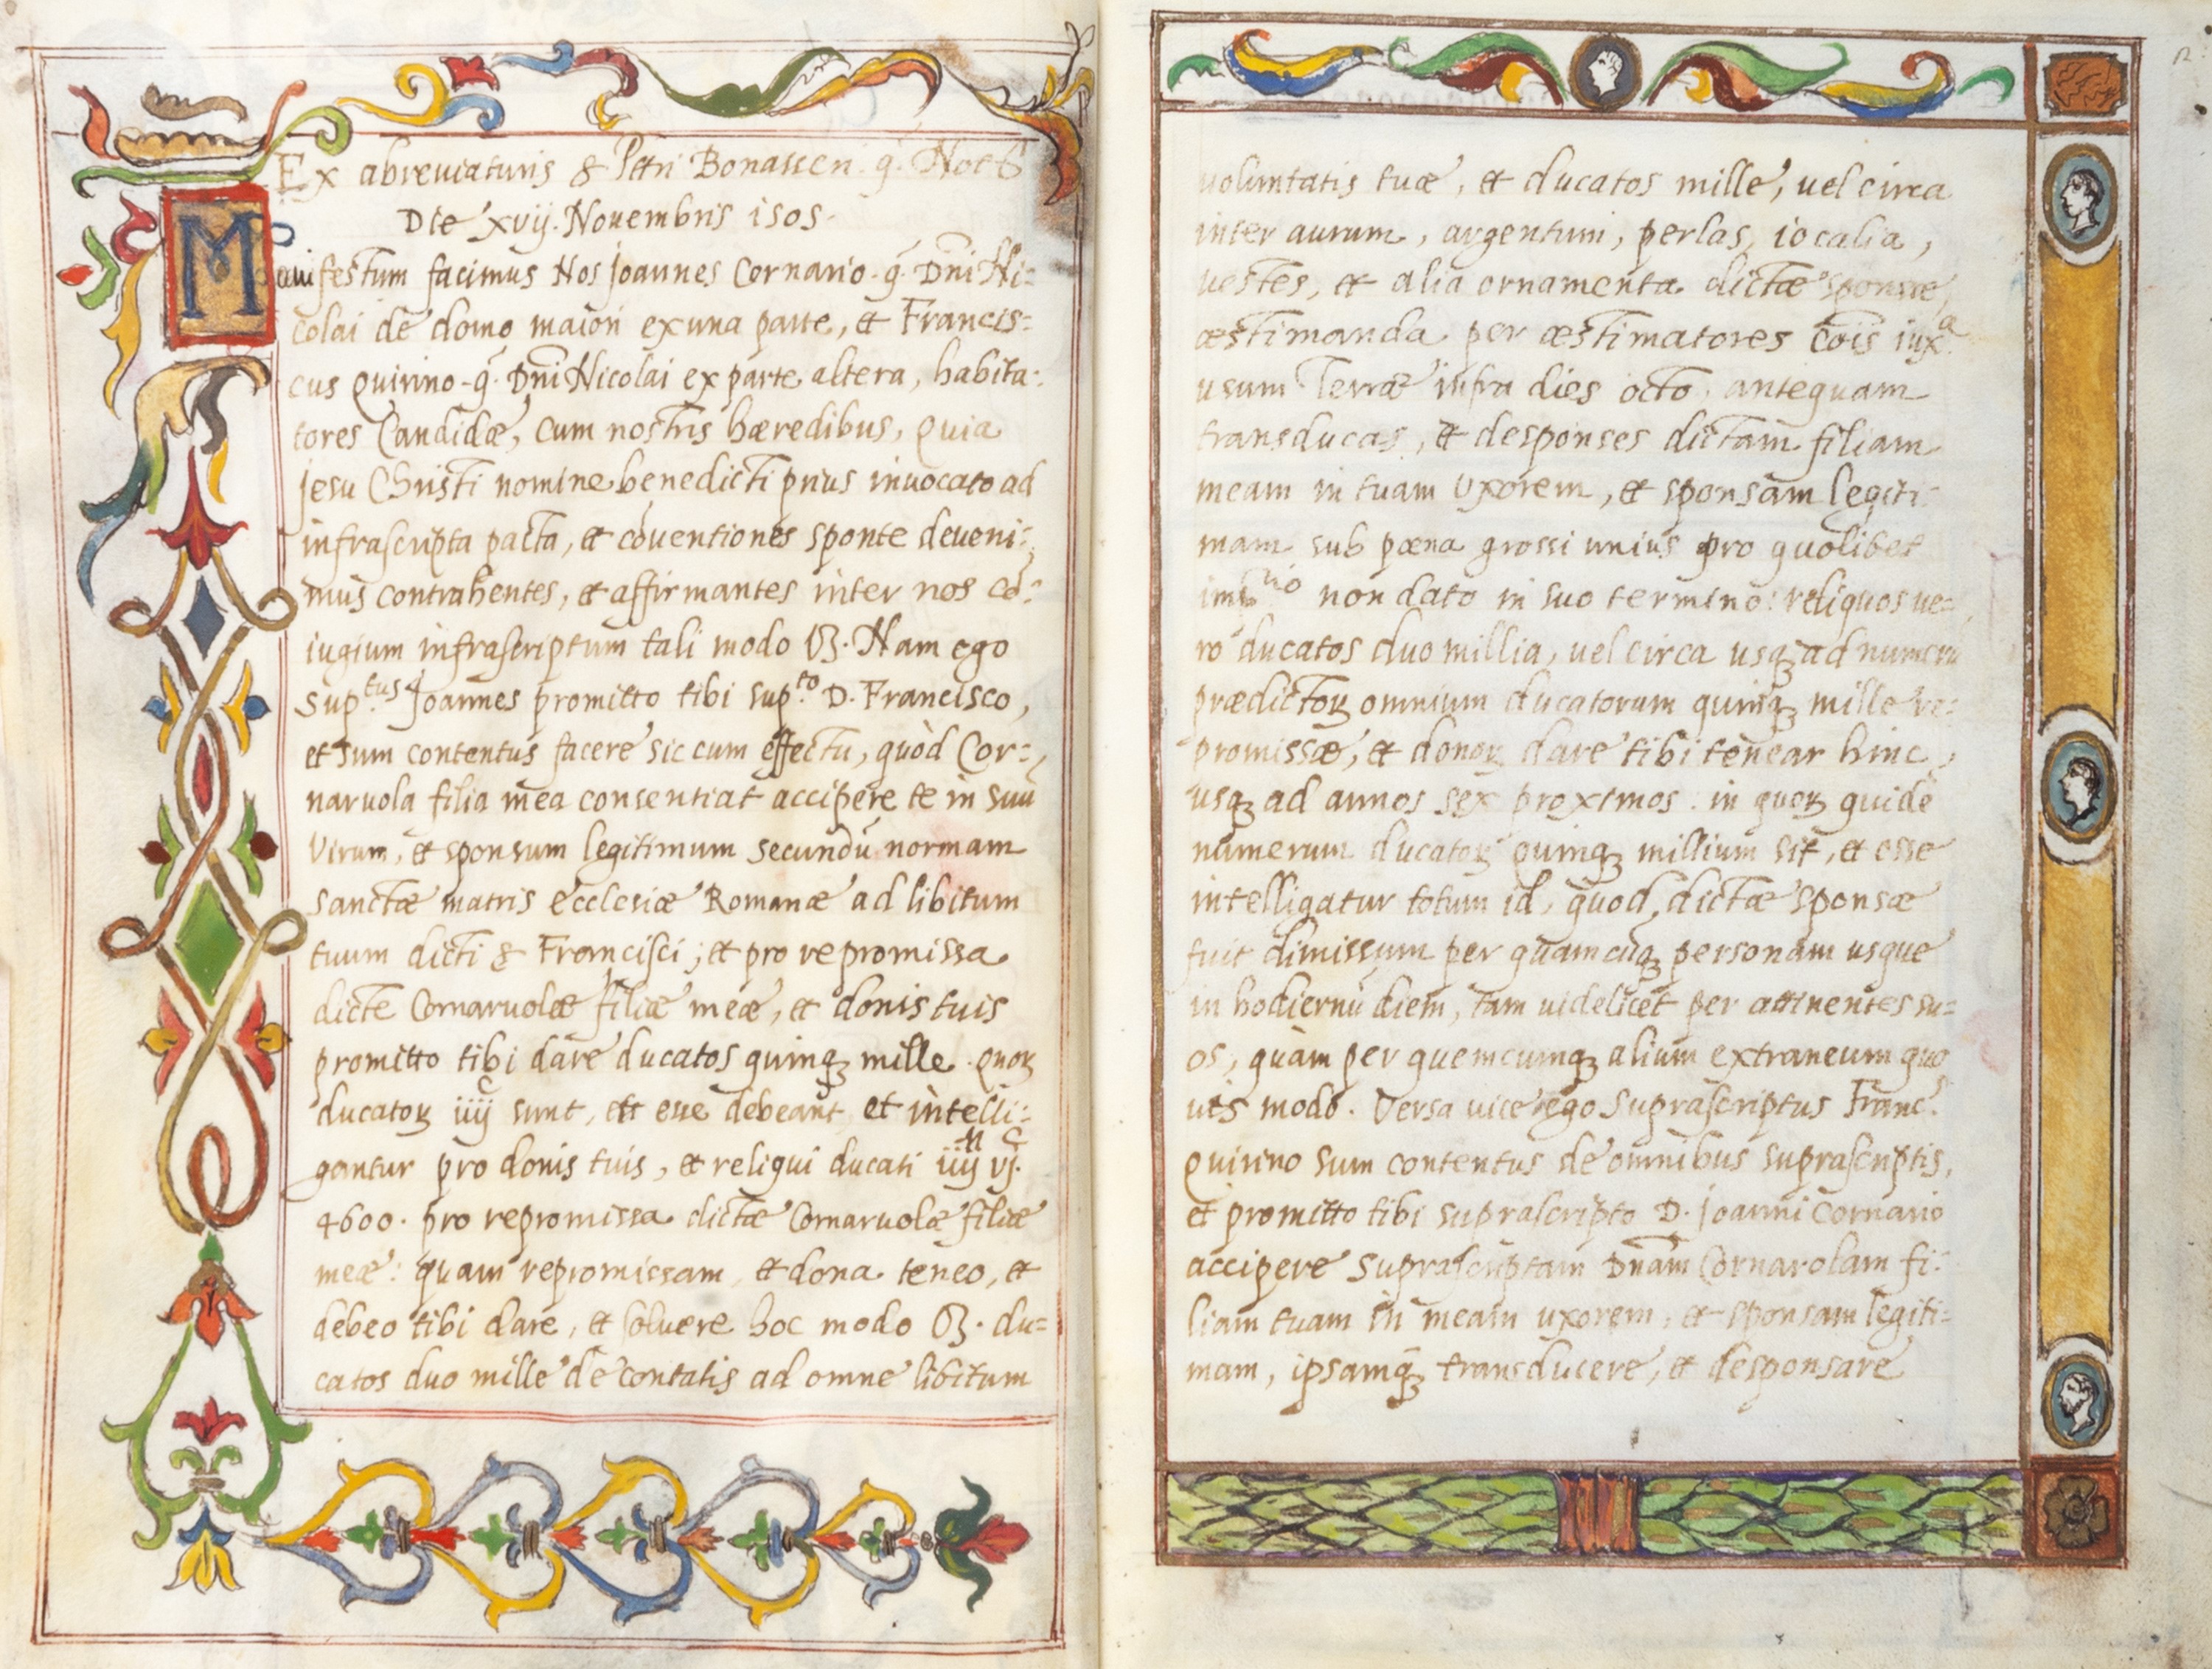 Ex abreviaturis & Petri Bonassen. q. Not
Die xvij. Novembris 1505.
Manifestum facimus Nos Joannes Cornario q. Dn̄i Ni:
colai de domo maiori ex una parte, et Francis:
cus Quirino q. Dn̄i Nicolai ex parte altera, habita:
tores Candidæ, cum nostris hæredibus, Quia
Jesu Christi nomine benedicti prius invocato ad
infrascripta pacta, et cōventiones sponte deveni:
mus contrahentes, et affirmantes inter nos cō:
iugium infrascriptum tali modo Vꝫ. Nam ego
sup.tus Joannes promitto tibi sup.to D. Francisco,
et sum contentus facere sic cum effectu, quòd Cor:
naruola filia mea consentiat accipere te in suū
Virum, et sponsum legitimum secundū normam
sanctæ matris ecclesiæ Romanæ ad libitum
tuum dicti & Francisci; et pro repromissa
dicte Cornaruolæ filiæ meæ, et donis tuis
promitto tibi dare ducatos quinqꝫ mille. Quoꝝ
ducatoꝝ iiij C sunt, et esse debeant, et intelli:
gantur pro donis tuis, et reliqui ducati iiij M vj C.
4600. pro repromissa dictæ Cornaruolæ filiæ
meæ: quam repromissam, et dona teneo, et
debeo tibi dare, et solvere hoc modo Vꝫ. du=
catos duo mille de contatis ad omne libitum
voluntatis tuæ, et ducatos mille, vel circa
inter aurum, argentum, perlas, iocalia,
vestes, et alia ornamenta dictæ sponsæ,
æstimanda per æstimatores cōis iux.a
usum Terræ infra dies octo antequam
transducas, et desponses dictam filiam
meam in tuam Uxorem, et sponsam legiti:
mam sub pœna grossi unius pro quolibet
non dato in suo termino: reliquos ve=
ro ducatos duo millia, vel circa usqꝫ ad numerū
prædictoꝝ omnium ducatorum quinqꝫ mille re=
promissæ, et donoꝝ dare tibi tenear hinc,
usqꝫ ad annos sex proximos: in quoꝝ quidē
numerum ducatoꝝ quinqꝫ millium sit, et esse
intelligatur totum id, quod dictæ sponsæ
fuit dimissum per quamcūqꝫ personam usque
in hodiernū diem, tam videlicet per attinentes su=
os, quàm per quemcumqꝫ alium extraneum quo
vis modo. Versa vice ego suprascriptus Franc.s
Quirino sum contentus de omnibus suprascriptis,
et promitto tibi suprascripto D. Joanni Cornario
accipere suprascriptam Dn̄am Cornarolam fi:
liam tuam in meam uxorem, et sponsam legiti:
mam, ipsamqꝫ transducere, et desponsare